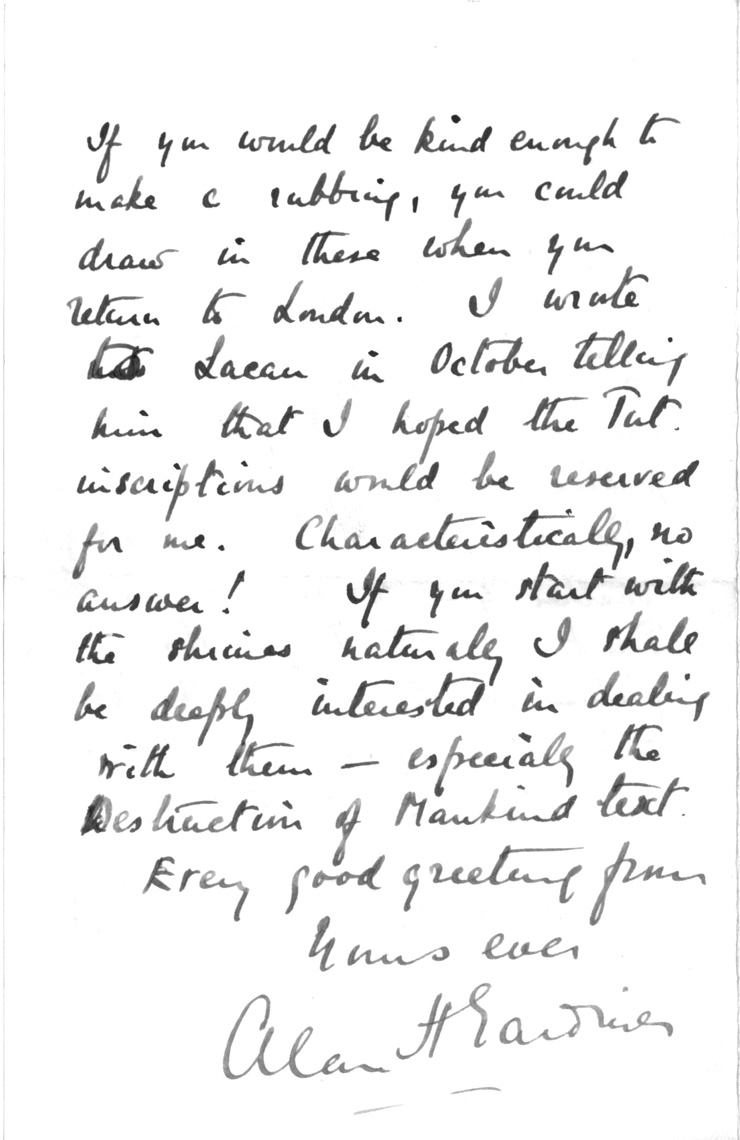 If you would be kind enough to
make a rubbing, you could
draw in these when you
return to London. I wrote
to Lacau in October telling
him that I hoped the Tut.
inscriptions would be reserved
for me. Characteristically, no
answer! If you start with
the shrines naturally I shall
be deeply interested in dealing
with them — especially the
Destruction of Mankind text.
Every good greeting from
Yours ever
Alan H Gardiner